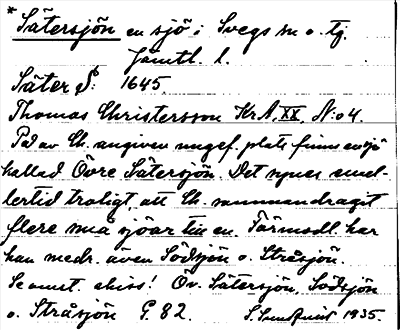 * Sätersjön en sjö i Svegs sn o. tg.
Jämtl. l.
Säter S: 1645.
Thomas Christersson Kr.A. XX, N:o 4.
På av Ch. angiven ungef. plats finns en sjö
kallad Övre Sätersjön. Det synes emel-
lertid troligt, att Ch. sammandragit
flere små sjöar till en. Förmodl. har
han medr. även Södsjön o. Stråsjön.
Se omst. skiss! Öv. Sätersjön, Södsjön
o. Stråsjön G. 82. S. Sundquist 1935.